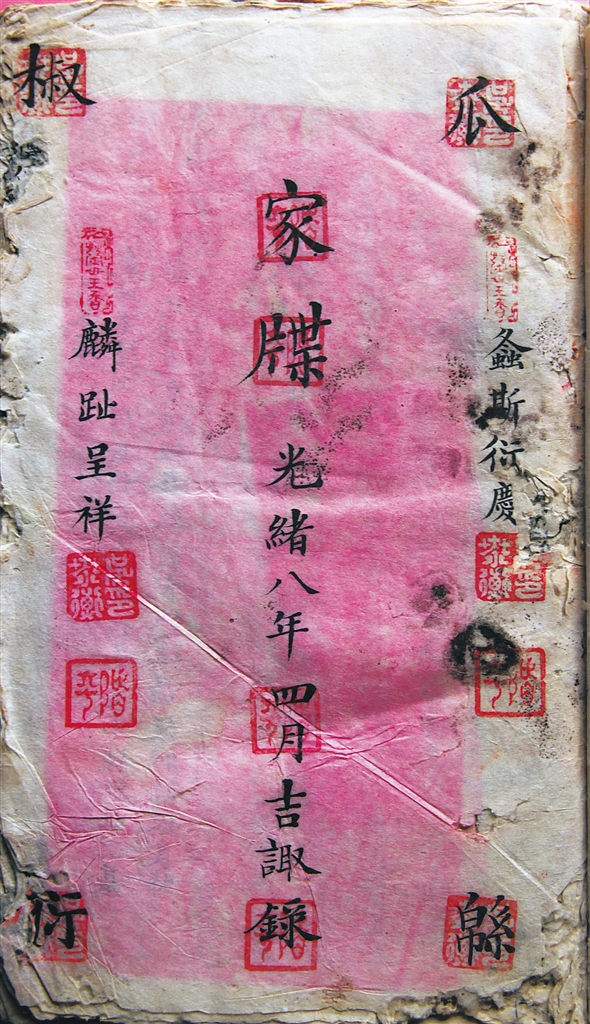 瓜緜
螽斯衍慶
家牒 光緒八年四月吉諏錄
麟趾呈祥
椒衍